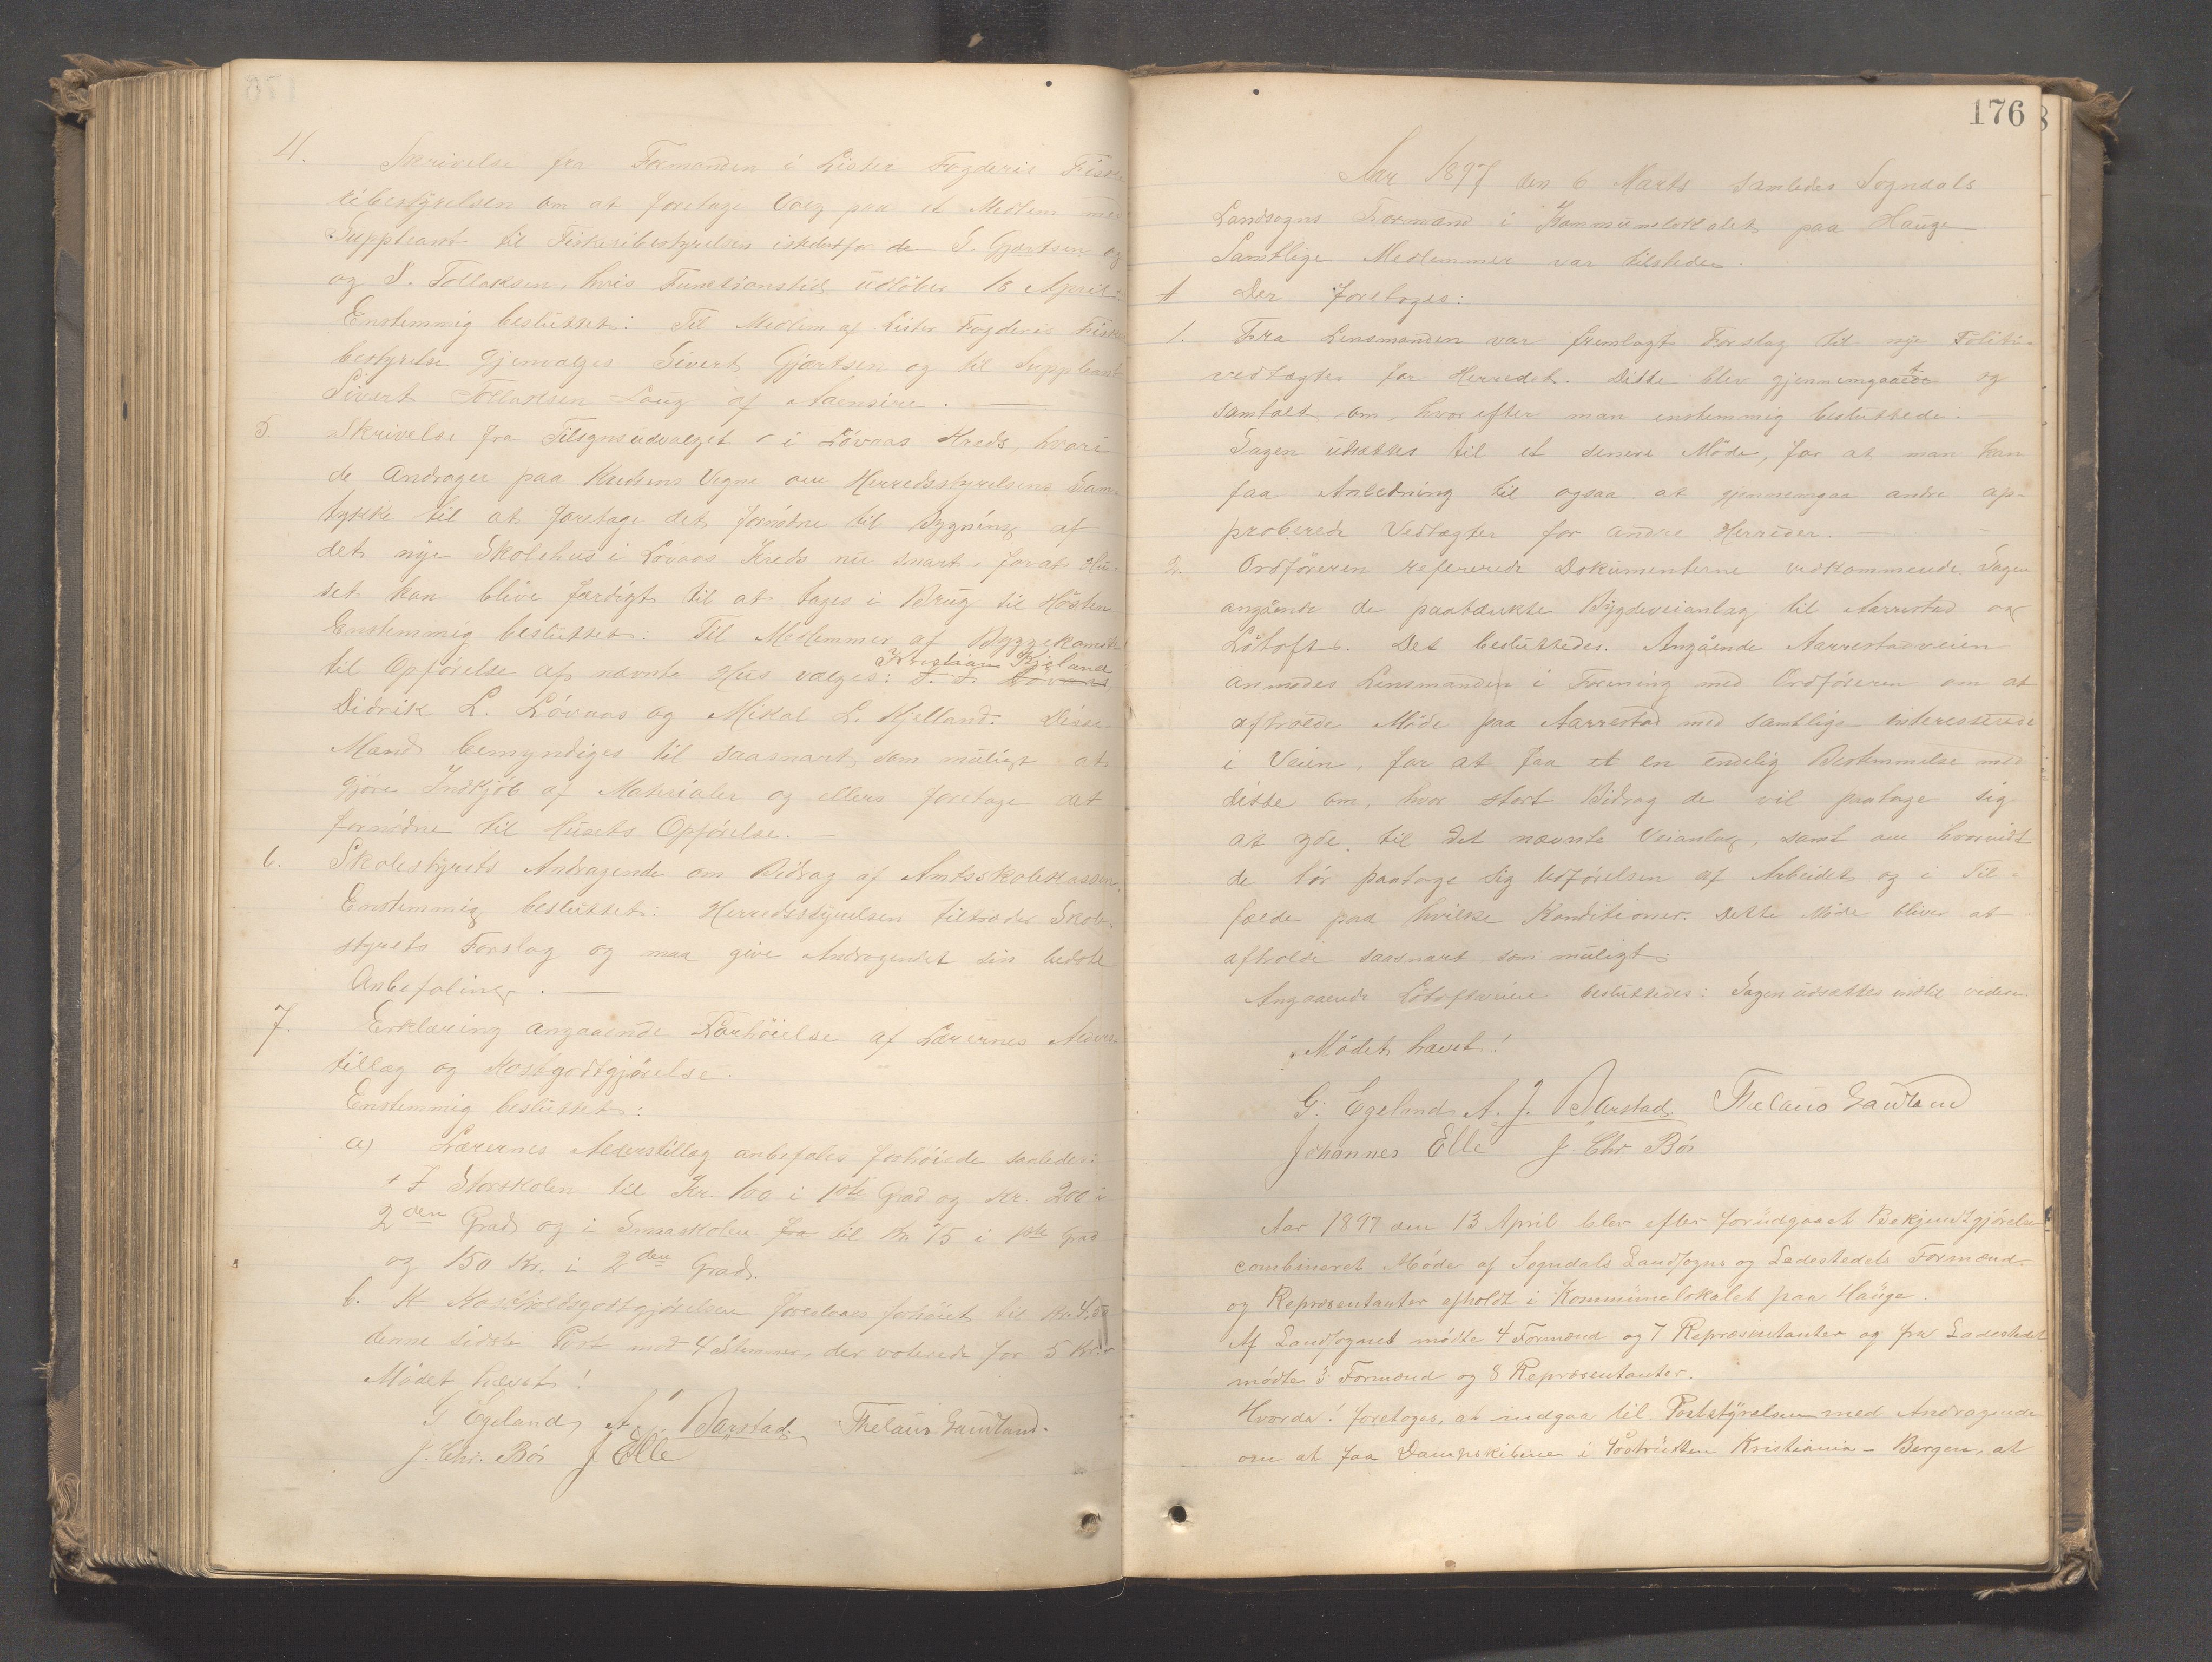 4. Skrivelse fra Formanden i Lister Fogderis Fiske
ribestyrelsen om at foretage Valg paa et Medlem med
Suppleant til Fiskeribestyrelsen istedetfor de G. Gjærtsen og
og S. Tollaksen, hvis Functionstid udløber 18 April
Enstemmig besluttet: Til Medlem af Lister Fogderis Fiske
bestyrelse gjenvalges Sivert Gjertsen og til Suppleant
Sivert Tollaksen Laug af Aaensire.
5. Skrivelse fra Tilsynsudvalget i Løvaas Kreds, hvori
de andrager paa Kredsens Vegne om Herredsstyrelsens Sam-
tykke til at foretage det fornødne til Bygning af
det nye Skolehus i Løvaas Kreds nu snart, forat Hu-
set kan blive færdigt til at tages i Brug til Høsten.
Enstemmig besluttet: Til Medlemmer af Byggekomite
til Opførelse af nævnte Hus vælges: Kristian Kjelland
Didrik L. Løvaas og Mikal L. Kjelland. Disse
Mænd bemyndiges til saasnart som muligt at
gjøre Indkjøb af Materialer og ellers foretage det
fornødne til Husets Opførelse.
6. Skolestyrets Andragende om Bidrag af Amtsskolekassen.
Enstemmig besluttet: Herredsstyrelsen tiltræder Skole-
styrets Forslag og maa give Andragendet sin bedste
Anbefaling.
7. Erklæring angaaende Forhøielse af Lærernes Alders
tillæg og Kostgodtgjørelse.
Enstemmig besluttet:
a) Lærernes Alderstillæg anbefales forhøiede saaledes:
I Storskolen til Kr. 100 i 1ste Grad og Kr. 200 i
2den Grad og i Smaaskolen fra til Kr 75 i 1ste Grad
og 150 Kr. i 2den Grad.
b. Kostholdsgodtgjørelsen foreslaaes forhøiet til Kr. 4,50
denne sidste Post mod 4 Stemmer, der voterede for 5 Kr.
Mødet hævet!
G Egeland A. J. Barstad Thelaus Gautland.
J. Chr. Bøi J Elle
176
Aar 1897 den 6 Marts samledes Sogndals
Landsogns Formænd i Kommunelokalet paa Hauge
Samtlige Medlemmer var tilstede.
A Der foretages:
1. Fra Lensmanden var fremlagt Forslag til nye Politi-
vedtægter for Herredet. Ditte blev gjennemgaaet og
samtalt om, hvorefter man enstemmig besluttede:
Sagen udsættes til et senere Møde, for at man kan
faa Anledning til ogsaa at gjennemgaa andre ap-
proberede Vedtægter for andre Herreder.
2. Ordføreren refererede Dokumenterne vedkommende Sagen
angående de paatænkte Bygdeveianlæg til Aarrestad og
Løtoft. Det besluttedes. Angående Aarrestadveien
anmodes Lensmanden i Forening med Ordføreren om at
afholde Møde paa Aarrestad med samtlige interesserede
i Veien, for at faa et en endelig Bestemmelse med
disse om, hvor stort Bidrag de vil paatage sig
at yde til det nævnte Veianlæg, samt om hvorvidt
de tør paatage sig Udførelsen af Arbeidet og i Til-
fælde paa hvilke Konditioner. Dette Møde bliver at
afholde saasnart som muligt.
Angaaende Løtoftveien besluttedes: Sagen udsættes indtil videre
Mødet hævet!
G. Egeland A. J. Barstad Thelaus Gautland
Johannes Elle J. Chr Bøi
Aar 1897 den 13 April blev efter forudgaaet Bekjendtgjørelse
combineret Møde af Sogndals Landsogns og Ladestedets Formænd
og Repræsentanter afholdt i Kommunelokalet paa Hauge.
Af Landsognet mødte 4 Formænd og 7 Repræsentanter og fra Ladestedet
mødte 3 Formænd og 8 Repræsentanter.
Hvorda! foretoges, at indgaa til Poststyrelsen med Andragende
om at faa Dampskibene i Postrutten Kristiania - Bergen, at